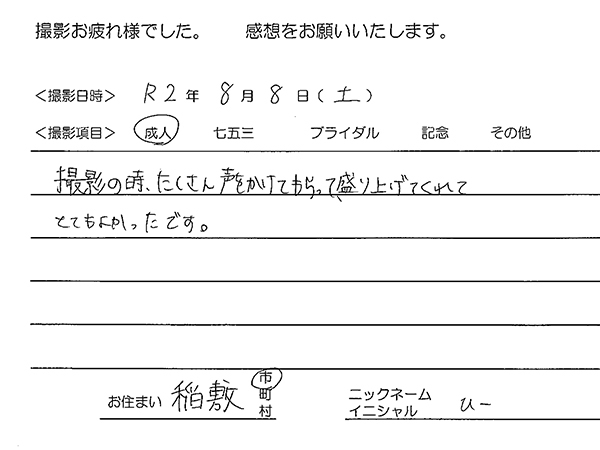 撮影お疲れ様でした。　感想をお願いいたします。
＜撮影日時＞ R2年 8月 8日(土)
＜撮影項目＞ 成人 七五三 ブライダル 記念 その他
撮影の時、たくさん声をかけてもらって、盛り上げてくれて
とてもよかったです。
お住まい 稲敷 市 町 村
ニックネーム イニシャル ひー